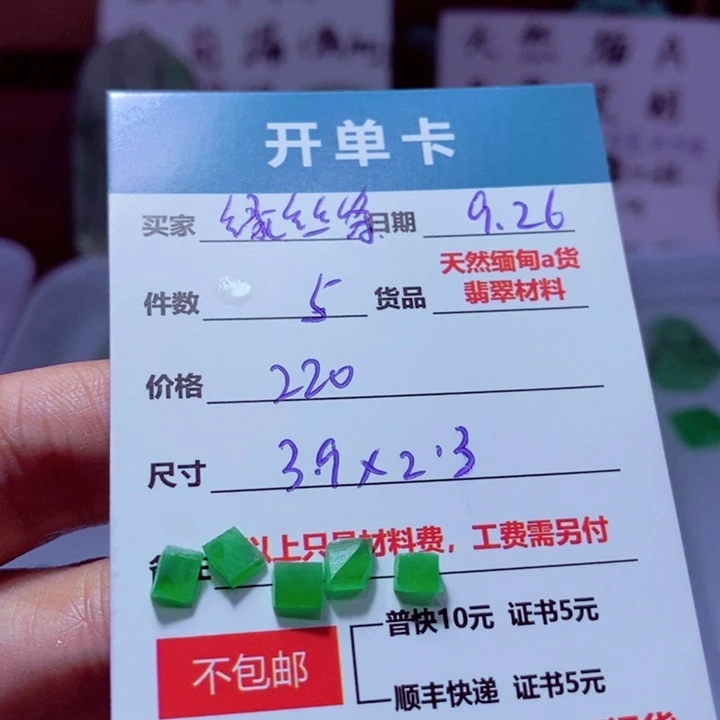 开单卡
买家 绿丝绦 日期 9.26
件数 5 货品 天然缅甸a货
翡翠材料
价格 220
尺寸 3.9x2.3
以上只是材料费，工费需另付
普快10元 证书5元
不包邮
顺丰快递 证书5元